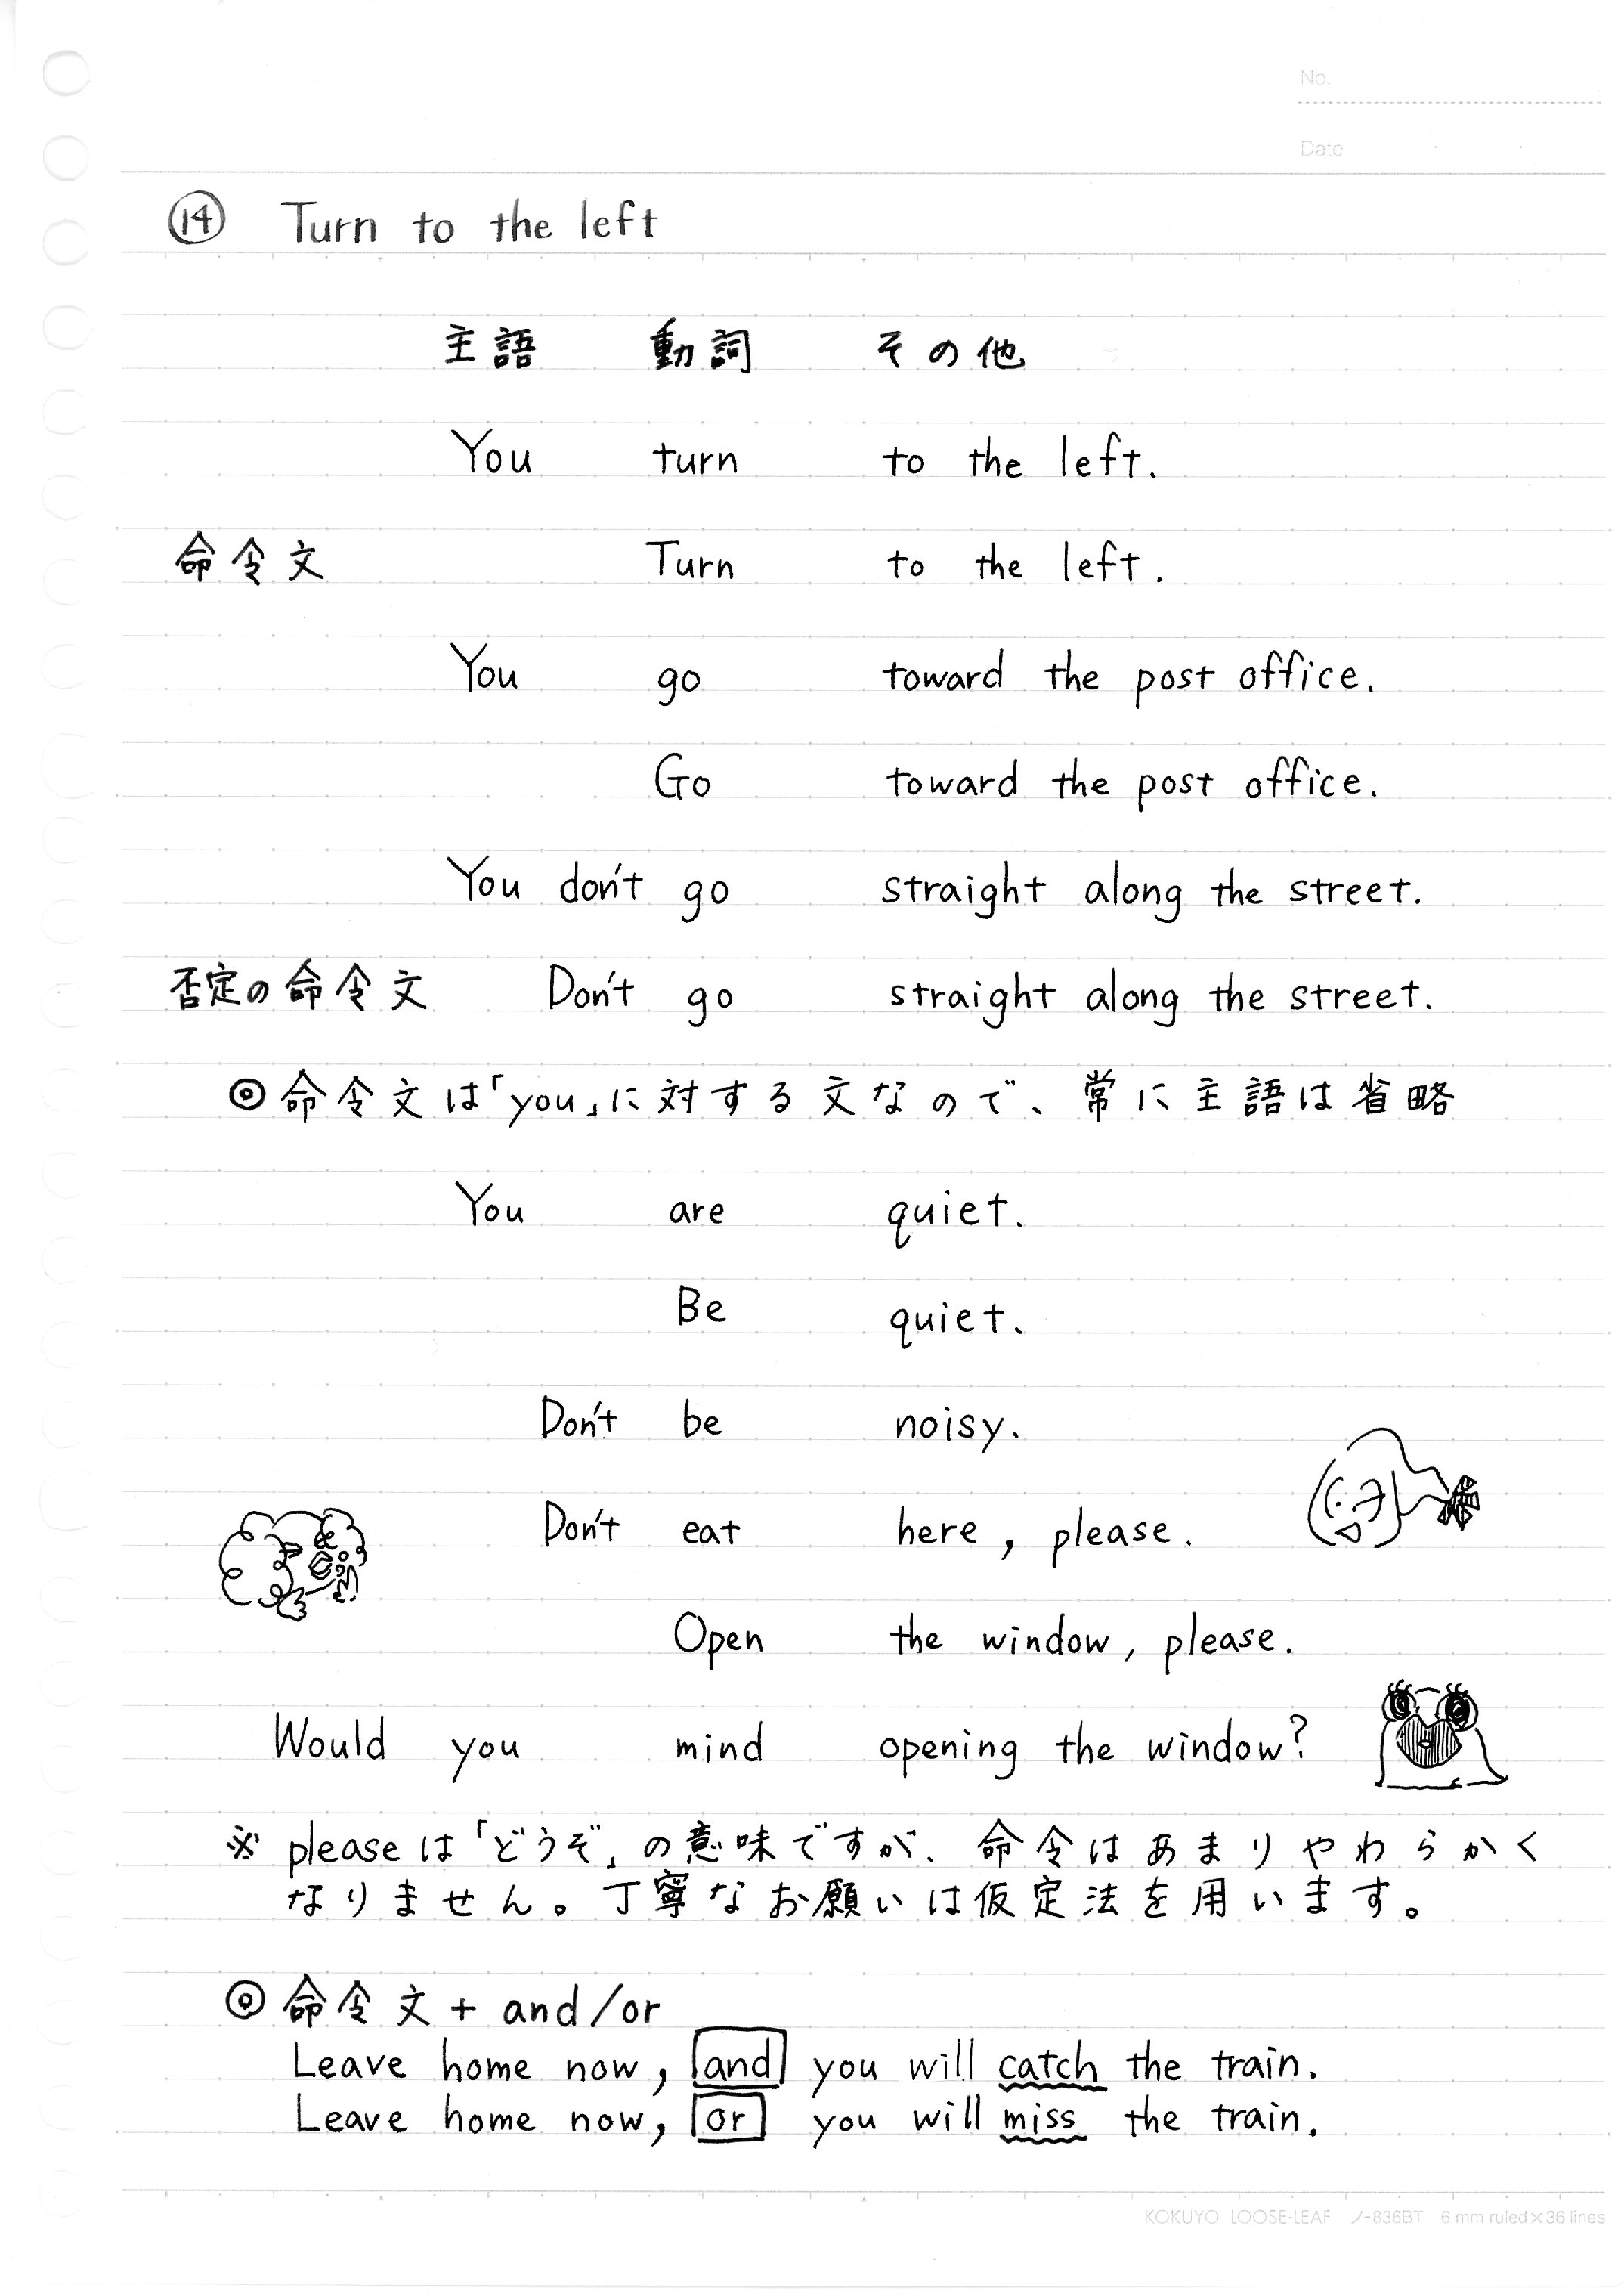 No.
Date
⑭ Turn to the left
主語 動詞 その他
You turn to the left.
命令文 Turn to the left.
You go toward the post office.
Go toward the post office.
You don't go straight along the street.
否定の命令文 Don't go straight along the street.
◎命令文は「you」に対する文なので、常に主語は省略
You are quiet.
Be quiet.
Don't be noisy.
Don't eat here, please.
Open the window, please.
Would you mind opening the window?
※ pleaseは「どうぞ」の意味ですが、命令はあまりやわらかく
なりません。丁寧なお願いは仮定法を用います。
◎命令文 + and/or
Leave home now, and you will catch the train.
Leave home now, or you will miss the train.
KOKUYO LOOSE-LEAF ノ-836BT 6 mm ruled×36 lines